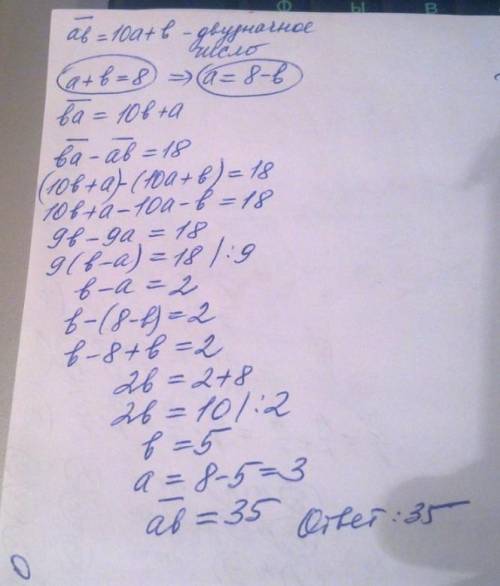 Ф Ы В
a̅b̅ = 10a+b - двузначное
число
a+b=8 ⇒ a=8-b
b̅a̅ = 10b+a
b̅a̅ - a̅b̅ = 18
(10b+a)-(10a+b)=18
10b+a-10a-b=18
9b-9a=18
9(b-a)=18 |:9
b-a=2
b-(8-b)=2
b-8+b=2
2b=2+8
2b=10 |:2
b=5
a=8-5=3
a̅b̅ = 35 Ответ: 35